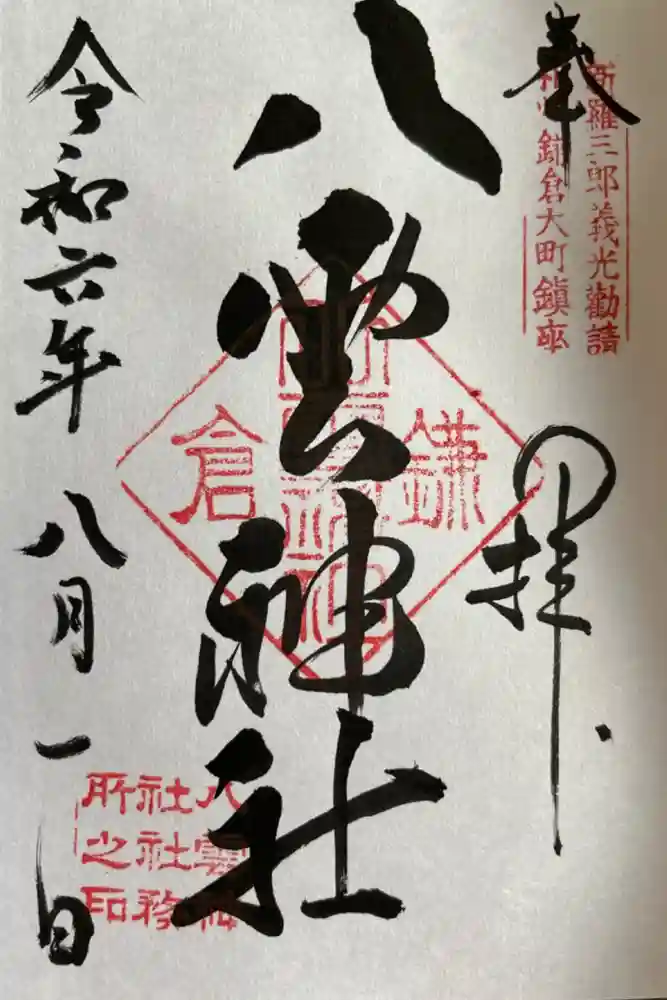 奉拝
新羅三郎義光勸請
相州鎌倉大町鎮座
八雲神社
鎌倉
八雲神社
社務
所之印
令和六年八月一日